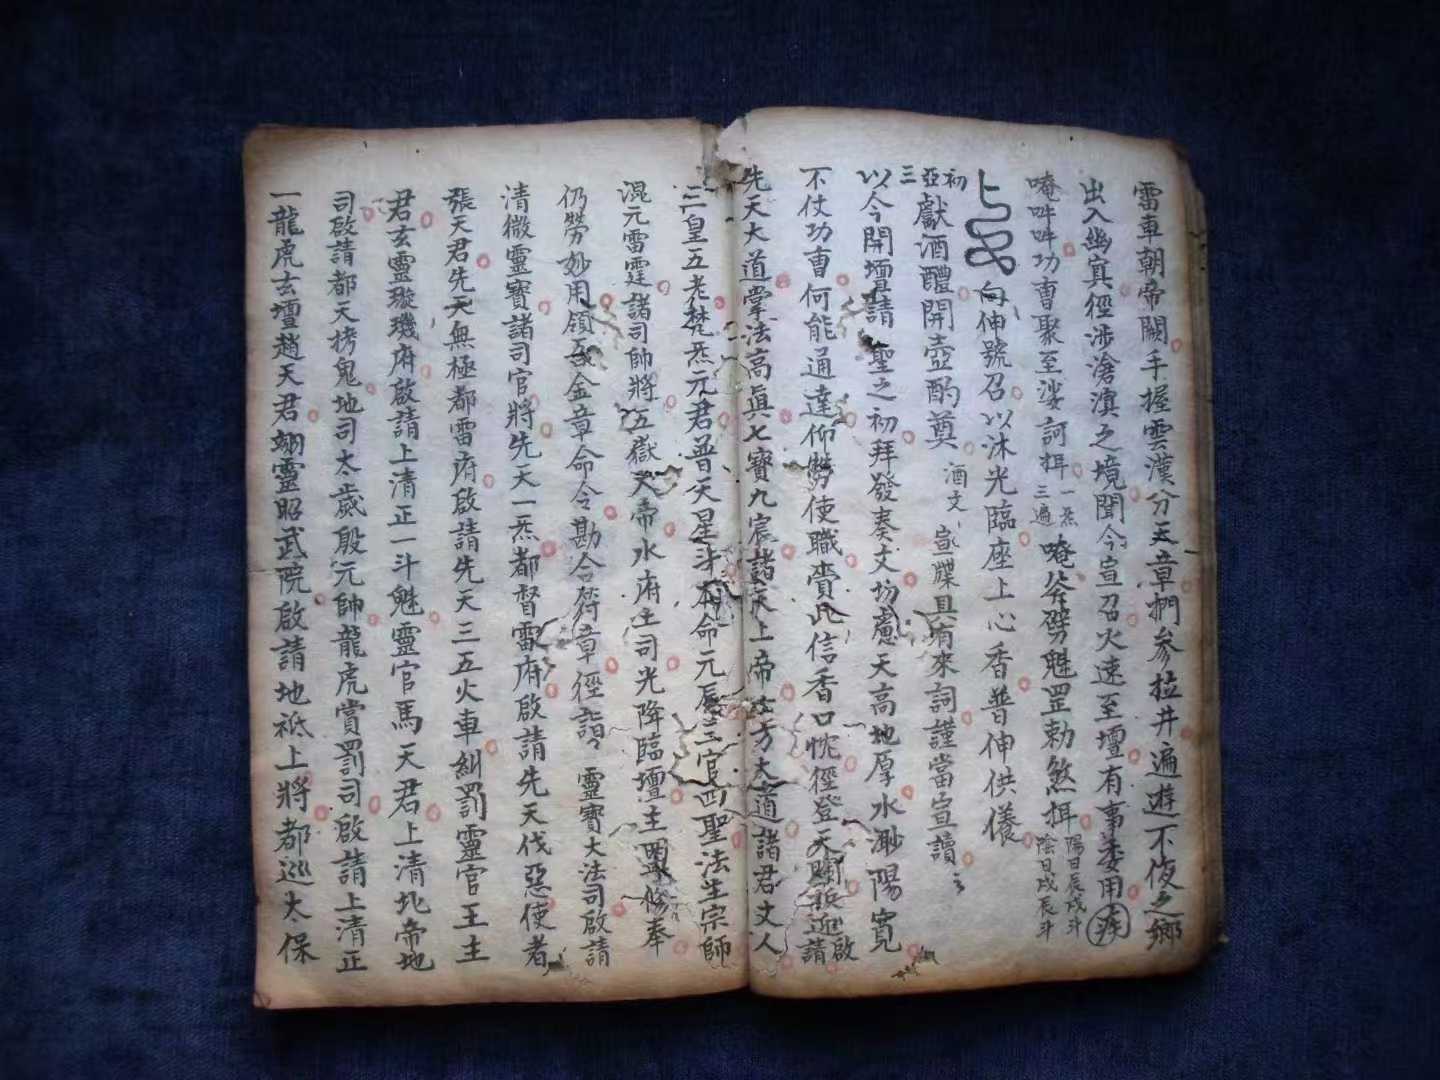 雷車朝帝闕手握雲漢分天章捫參拉井遍遊不夜之鄉
出入幽冥徑涉滄溟之境聞今宣召火速至壇有事委用疾
唵吽吽功曹聚至娑訶揖一炁三遍唵斧劈魁罡勅煞揖陽日辰戌斗陰日戌辰斗
向伸號召以沐光臨座上心香普伸供儀
初亞三獻酒醴開壺酌奠酒文宣牒具有來詞謹當宣讀
以今開壇請聖之初拜發奏文切慮天高地厚水渺陽寬
不仗功曹何能通達仰勞使職賫此信香口忱徑登天闕啟請
先天大道掌法高真七寶九宸諸天上帝十方大道諸君丈人
三皇五老梵炁元君普天星斗本命元辰三官四聖法主宗師
混元雷霆諸司帥將五嶽天帝水府土司光降臨壇主盟修奉
仍勞妙用領敕金章命令勘合符章徑詣靈寶大法司啟請
清微靈寶諸司官將先天一炁都督雷府啟請先天伐惡使者
張天君先天無極都雷府啟請先天三五火車糾罰靈官王主
君玄靈璇璣府啟請上清正一斗魁靈官馬天君上清北帝地
司啟請都天拷鬼地司太歲殷元帥龍虎賞罰司啟請上清正
一龍虎玄壇趙天君翊靈昭武院啟請地祇上將都巡太保